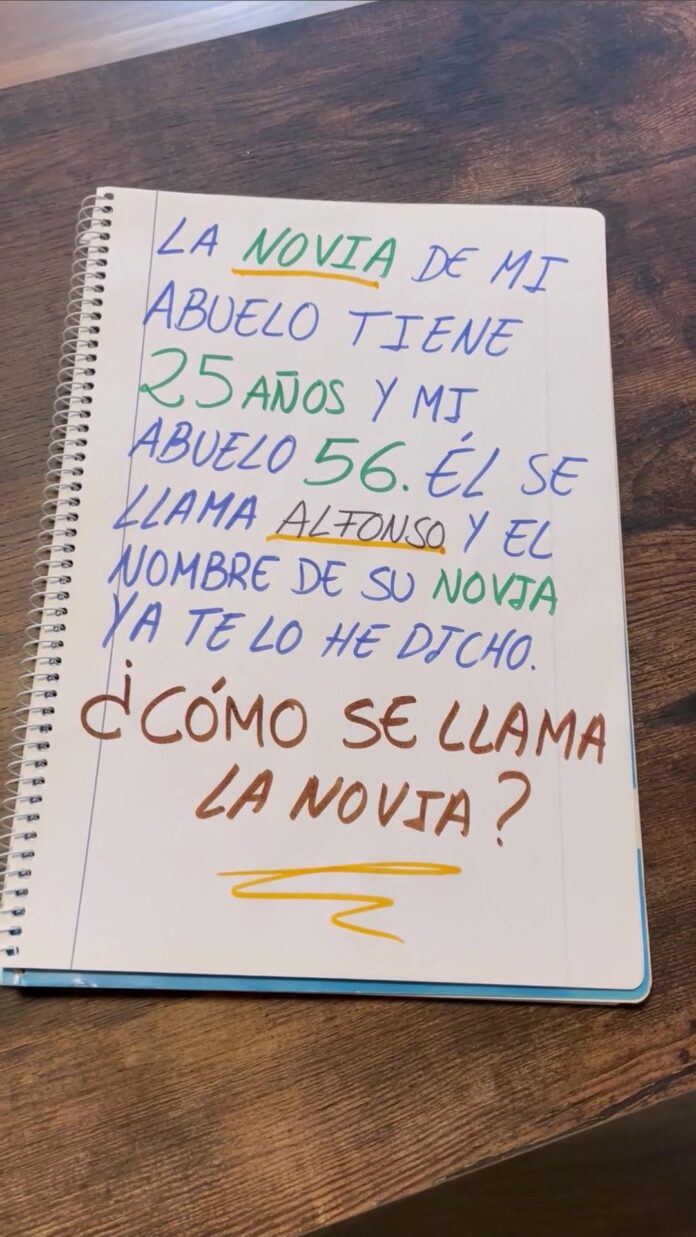 LA NOVIA DE MI
ABUELO TIENE
25 AÑOS Y MI
ABUELO 56. ÉL SE
LLAMA ALFONSO Y EL
NOMBRE DE SU NOVIA
YA TE LO HE DICHO.
¿CÓMO SE LLAMA
LA NOVIA?